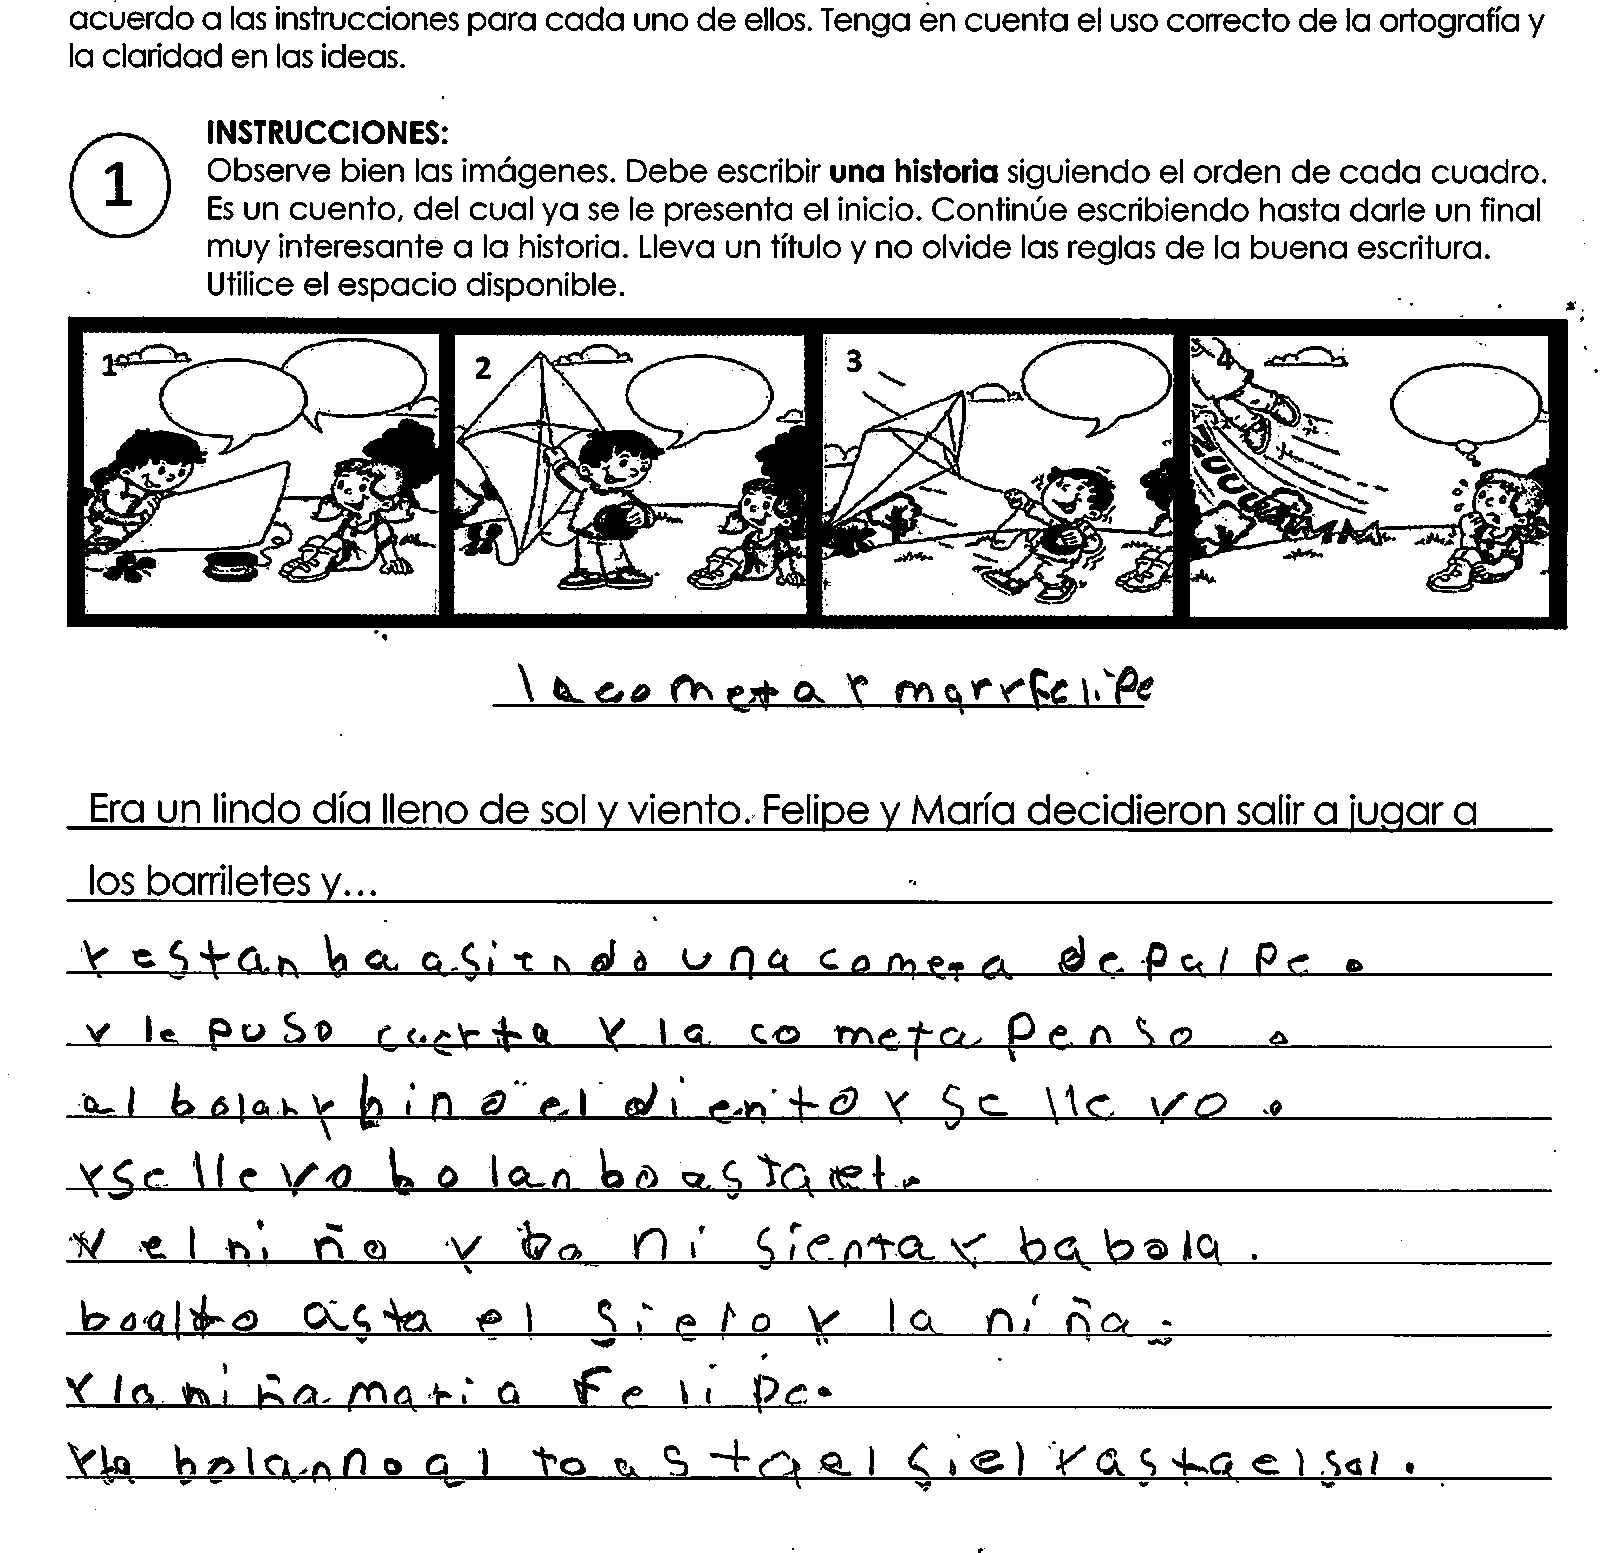 acuerdo a las instrucciones para cada uno de ellos. Tenga en cuenta el uso correcto de la ortografía y
la claridad en las ideas.
1
INSTRUCCIONES:
Observe bien las imágenes. Debe escribir una historia siguiendo el orden de cada cuadro.
Es un cuento, del cual ya se le presenta el inicio. Continúe escribiendo hasta darle un final
muy interesante a la historia. Lleva un título y no olvide las reglas de la buena escritura.
Utilice el espacio disponible.
1 2 3 4
la cometa y mary felipe
Era un lindo día lleno de sol y viento. Felipe y María decidieron salir a jugar a
los barriletes y...
y estan ba asiendo una cometa de palpe.
y le puso cuerta y la cometa penso.
al bolar y bino el diento y se llevo.
y se llevo bolanbo asta et.
y el niño y ba ni sienta y ba bola.
boalto asta el sielo y la niña.
y la niña maria Felipe.
y la bolanno alto asta el siel y asta el sol.